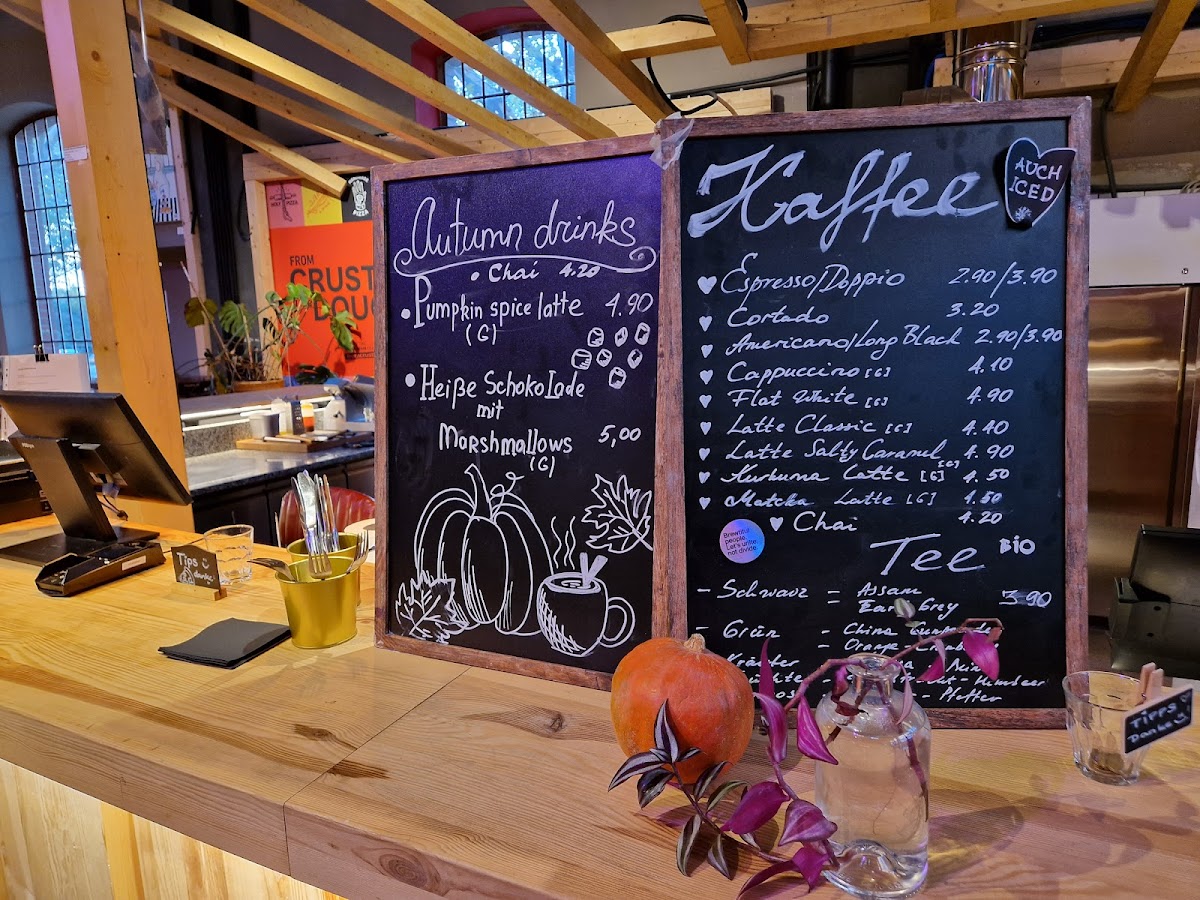 Autumn drinks
• Chai 4.20
• Pumpkin spice latte 4.90
(G)
• Heiße Schokolade
mit
Marshmallows 5,00
(G)
Kaffee
AUCH
ICED
Espresso/Doppio 2.90/3.90
Cortado 3.20
Americano/Long Black 2.90/3.90
Cappuccino [G] 4.10
Flat White [G] 4.90
Latte Classic [G] 4.40
Latte Salty Caramel [G] 4.90
Kurkuma Latte [G] 4.50
Matcha Latte [G] 4.50
Chai 4.20
Brewtiful
people.
Let's unite,
not divide.
Tee BIO
- Schwarz - Assam
- Earl Grey 3.90
- Grün - China
- Orange
Kräuter
- Himbeer
- Pfeffer
FROM
CRUST
PIZZA
Tips
danke
Tipps
Danke